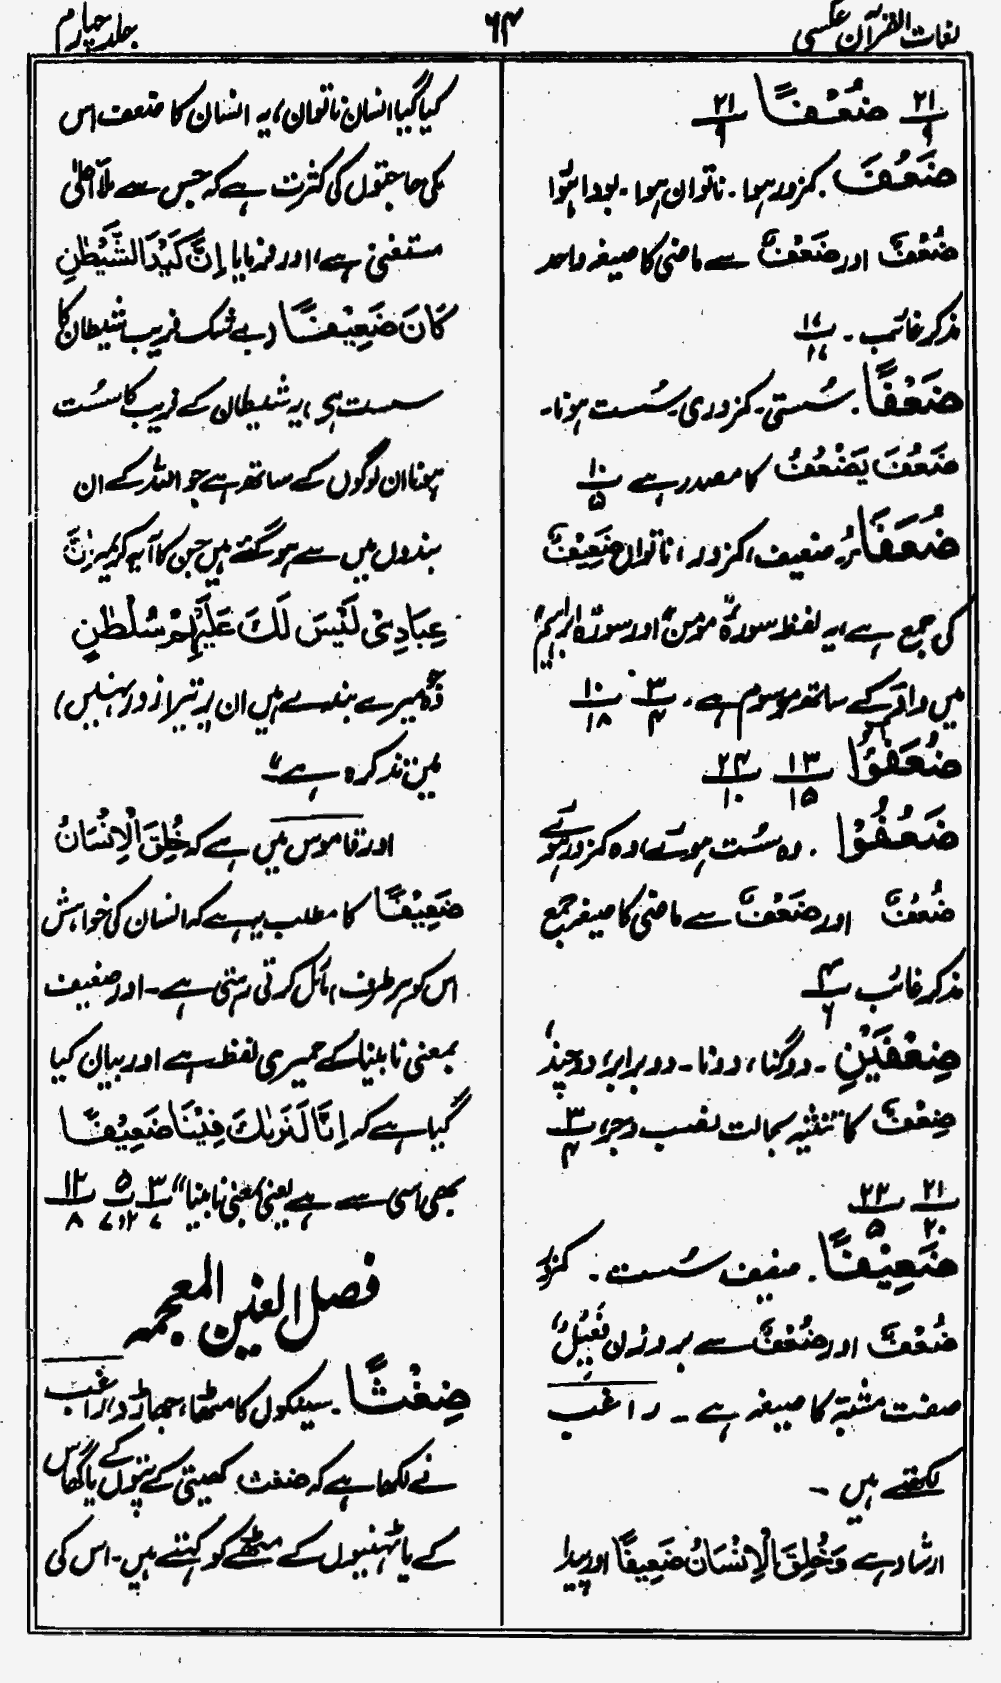 لغات القرآن عکسی
۶۴
جلد چہارم
۲۱/۹ ضُعْفًا ۲۱/۹
ضَعُفَ کمزور ہوا۔ ناتواں ہوا۔ بودا ہوا
ضُعْفٌ اور ضَعْفٌ سے ماضی کا صیغہ واحد
مذکر غائب۔ ۱۷/۱۶
ضَعْفًا۔ سُستی۔ کمزوری۔ سُست ہونا۔
ضَعُفَ يَضْعُفُ کا مصدر ہے ۱۰/۵
ضُعَفَاءُ ضعیف، کمزور، ناتواں ضَعِيْفٌ
کی جمع ہے، یہ لفظ سورۂ مؤمن اور سورۂ ابراہیم
میں واؤ کے ساتھ مرسوم ہے۔ ۳/۴ ۱۰/۱۸
ضُعَفٰٓؤُا ۱۳/۱۵ ۲۴/۱۰
ضَعُفُوْا۔ وہ سُست ہوئے، وہ کمزور ہوئے
ضُعْفٌ اور ضَعْفٌ سے ماضی کا صیغہ جمع
مذکر غائب ۴/۶
ضِعْفَيْنِ۔ دوگنا، دونا۔ دو برابر، دوچند،
ضِعْفٌ کا تثنیہ بحالت نصب وجر، ۳/۴
۲۱/۲۰ ۲۲/۵
ضَعِيْفًا۔ ضعیف سُست۔ کمزور
ضُعْفٌ اور ضَعْفٌ سے بروزن فَعِيْلٌ،
صفت مشبّہ کا صیغہ ہے۔ راغب
لکھتے ہیں۔
ارشاد ہے وَخُلِقَ الْاِنْسَانُ ضَعِيفًا اور پیدا
کیا گیا انسان ناتواں، یہ انسان کا ضعف اس
کی حاجتوں کی کثرت ہے کہ جس سے ملأ اعلیٰ
مستغنی ہے، اور فرمایا اِنَّ كَيْدَ الشَّيْطٰنِ
كَانَ ضَعِيْفًا (بے شک فریب شیطان کا
سست ہے، یہ شیطان کے فریب کا سُست
ہونا ان لوگوں کے ساتھ ہے جو اللہ کے ان
بندوں میں سے ہو گئے ہیں جن کا آیہ کریمہ اِنَّ
عِبَادِىْ لَيْسَ لَكَ عَلَيْهِمْ سُلْطٰنٌ
(جو میرے بندے ہیں ان پر تیرا زور نہیں)
میں تذکرہ ہے"
اور قاموس میں ہے کہ خُلِقَ الْاِنْسَانُ
ضَعِيْفًا کا مطلب یہ ہے کہ انسان کی خواہش
اس کو ہر طرف مائل کرتی رہتی ہے۔ اور ضعیف
بمعنی نابینا کے حمیری لفظ ہے اور بیان کیا
گیا ہے کہ اِنَّا لَنَرٰىكَ فِيْنَا ضَعِيْفًا
بھی اسی سے ہے یعنی بمعنی نابینا" ۳/۷ ۵/۱۲،۷ ۱۲/۸
فصل الغین المعجمہ
ضِغْثًا۔ سینکوں کا مٹھا، جھاڑو، راغب
نے لکھا ہے کہ ضغث کھیتی کے تنوں یا گھاس کے
کے یا ٹہنیوں کے مٹھے کو کہتے ہیں۔ اس کی